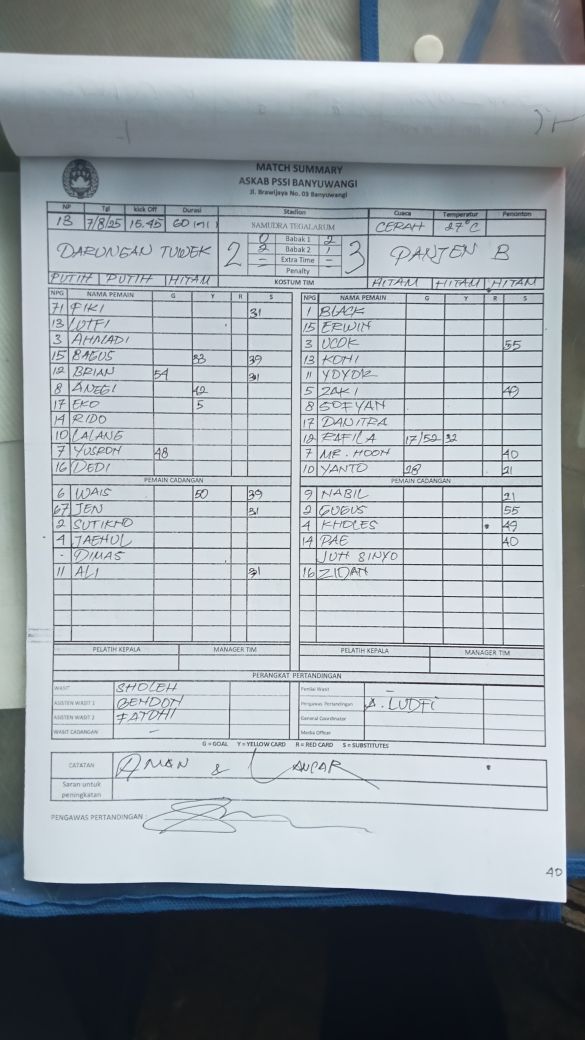 MATCH SUMMARY
ASKAB PSSI BANYUWANGI
Jl. Brawijaya No. 03 Banyuwangi
NP Tgl kick Off Durasi Stadion Cuaca Temperatur Penonton
13 7/8/25 15.45 60 SAMUDRA TEGALARUM CERAH 27°C
DARUNGAN TUWEK 2 3 PANJEN B
0 Babak 1 2
2 Babak 2 1
– Extra Time –
– Penalty
PUTIH PUTIH HITAM KOSTUM TIM HITAM HITAM HITAM
NPG NAMA PEMAIN G Y R S NPG NAMA PEMAIN G Y R S
71 FIKI 31 1 BLACK
13 LUTFI 15 ERWIN
3 AHMADI 3 UCOK 55
15 BAGUS 33 39 13 KOHI
12 BRIAN 54 31 11
8 ANEGI 42 5 ZAKI 49
17 EKO 5 8 SOFYAN
14 RIDO 17 DANITRA
10 LALANG 12 RAFILA 17/52 32
7 YUSRON 48 7 MR. HOON 40
16 DEDI 10 YANTO 28 21
PEMAIN CADANGAN PEMAIN CADANGAN
6 WAIS 50 39 9 NABIL 21
67 JEN 31 2 GUGUS 55
2 SUTIKNO 4 KHOLES 49
4 JAEHUL 14 PAE 40
- DIMAS JUH SINYO
11 ALI 31 16 ZIDAN
PELATIH KEPALA MANAGER TIM PELATIH KEPALA MANAGER TIM
PERANGKAT PERTANDINGAN
WASIT SHOLEH Penilai Wasit –
ASISTEN WASIT 1 GENDON Pengawas Pertandingan A. LUDFI
ASISTEN WASIT 2 FATONI General Coordinator
WASIT CADANGAN – Media Officer
G = GOAL Y = YELLOW CARD R = RED CARD S = SUBSTITUTES
CATATAN AMAN & LANCAR
Saran untuk
peningkatan
PENGAWAS PERTANDINGAN :
40